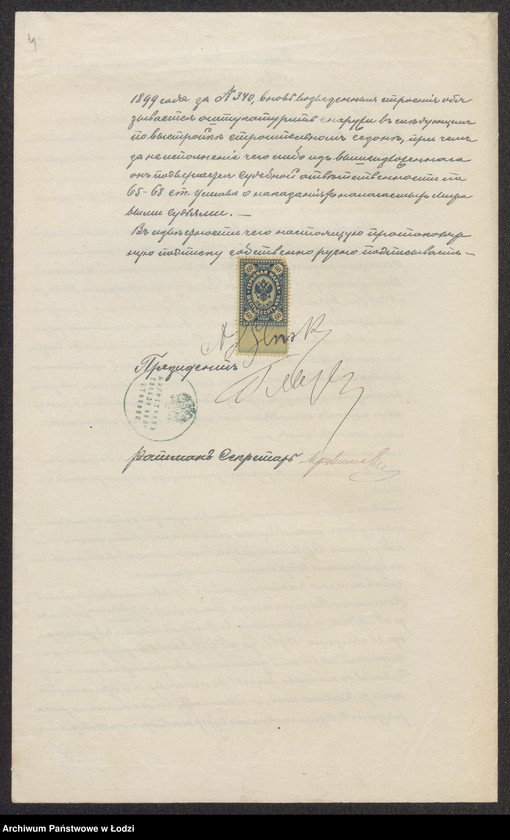 4
1899 года за № 340, вновь возведенныя строенія обя
зывается оштукатурить снаружи въ слѣдующемъ
по выстройкѣ строительномъ сезонѣ, при чемъ
за неисполненіе чего либо изъ вышеизложеннаго
онъ подвергаем судебной отвѣтственности по
65-68 ст. устава о наказаніяхъ налагаемыхъ Миро
выми судьями. —
Въ удостовѣреніе чего настоящую протоколь
ную подписку собственноручно подписываетъ —
60 60
ГЕРБОВАЯ МАРКА
ШЕСТЬДЕСЯТЪ КОП.
60 60
Президентъ
Ратманъ Секретарь
Archiwum Państwowe w Łodzi